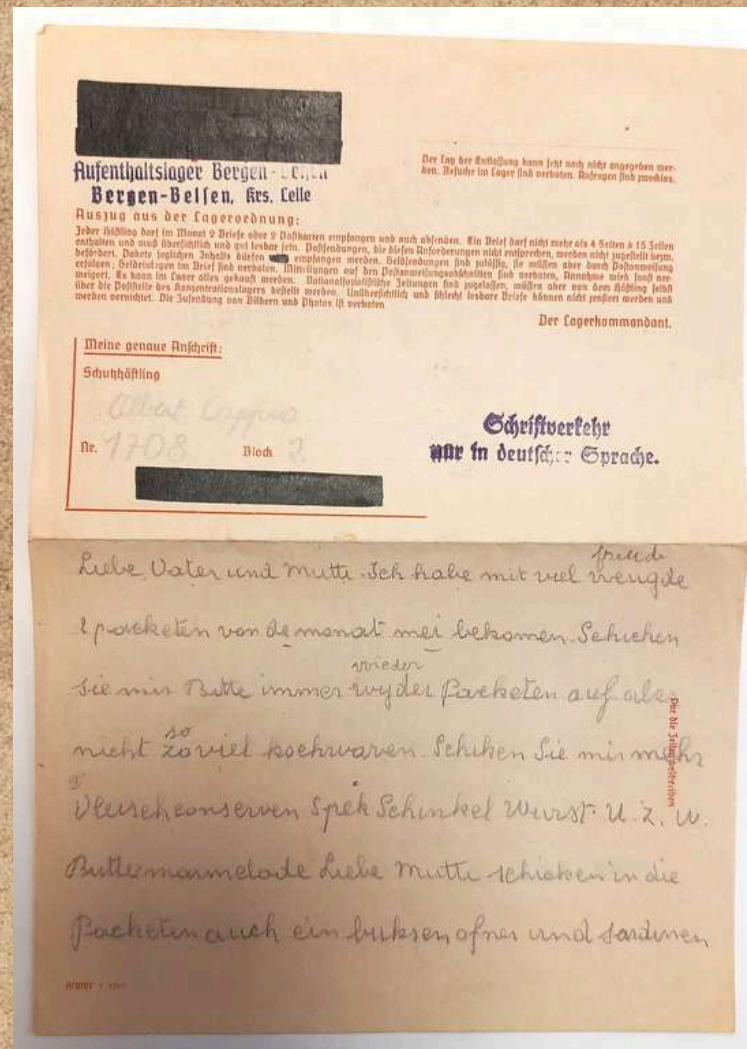 Aufenthaltslager Bergen-Belsen
Bergen-Belsen, Krs. Celle
Der Tag der Entlassung kann jetzt noch nicht angegeben wer-
den. Besuche im Lager sind verboten. Anfragen sind zwecklos.
Auszug aus der Lagerordnung:
Jeder Häftling darf im Monat 2 Briefe oder 2 Postkarten empfangen und auch absenden. Ein Brief darf nicht mehr als 4 Seiten à 15 Zeilen
enthalten und muß übersichtlich und gut lesbar sein. Postsendungen, die diesen Anforderungen nicht entsprechen, werden nicht zugestellt bezw.
befördert. Pakete jeglichen Inhalts dürfen empfangen werden. Geldsendungen sind zulässig, sie müssen aber durch Postanweisung
erfolgen; Geldbeilagen im Brief sind verboten. Mitteilungen auf den Postanweisungsabschnitten sind verboten, Annahme wird sonst ver-
weigert. Es kann im Lager alles gekauft werden. Nationalsozialistische Zeitungen sind zugelassen, müssen aber von dem Häftling selbst
über die Poststelle des Konzentrationslagers bestellt werden. Unübersichtlich und schlecht lesbare Briefe können nicht zensiert werden und
werden vernichtet. Die Zusendung von Bildern und Photos ist verboten
Der Lagerkommandant.
Meine genaue Anschrift:
Schutzhäftling
Albert
Nr. 1708 Block 2
Schriftverkehr
nur in deutscher Sprache.
freude
Liebe Vater und Mutti. Ich habe mit viel vreugde
2 packeten von de monat mei bekomen. Schicken
wieder
Sie mir Bitte immer wyder Packeten auf. aber
so
nicht zo viel kochwaren. Schiken Sie mir mehr
Vleischconserven Spek Schinkel Wurst. U. Z. W.
Butter marmelade Liebe Mutti schicken in die
Packeten auch ein buksen ofner und Sardinen